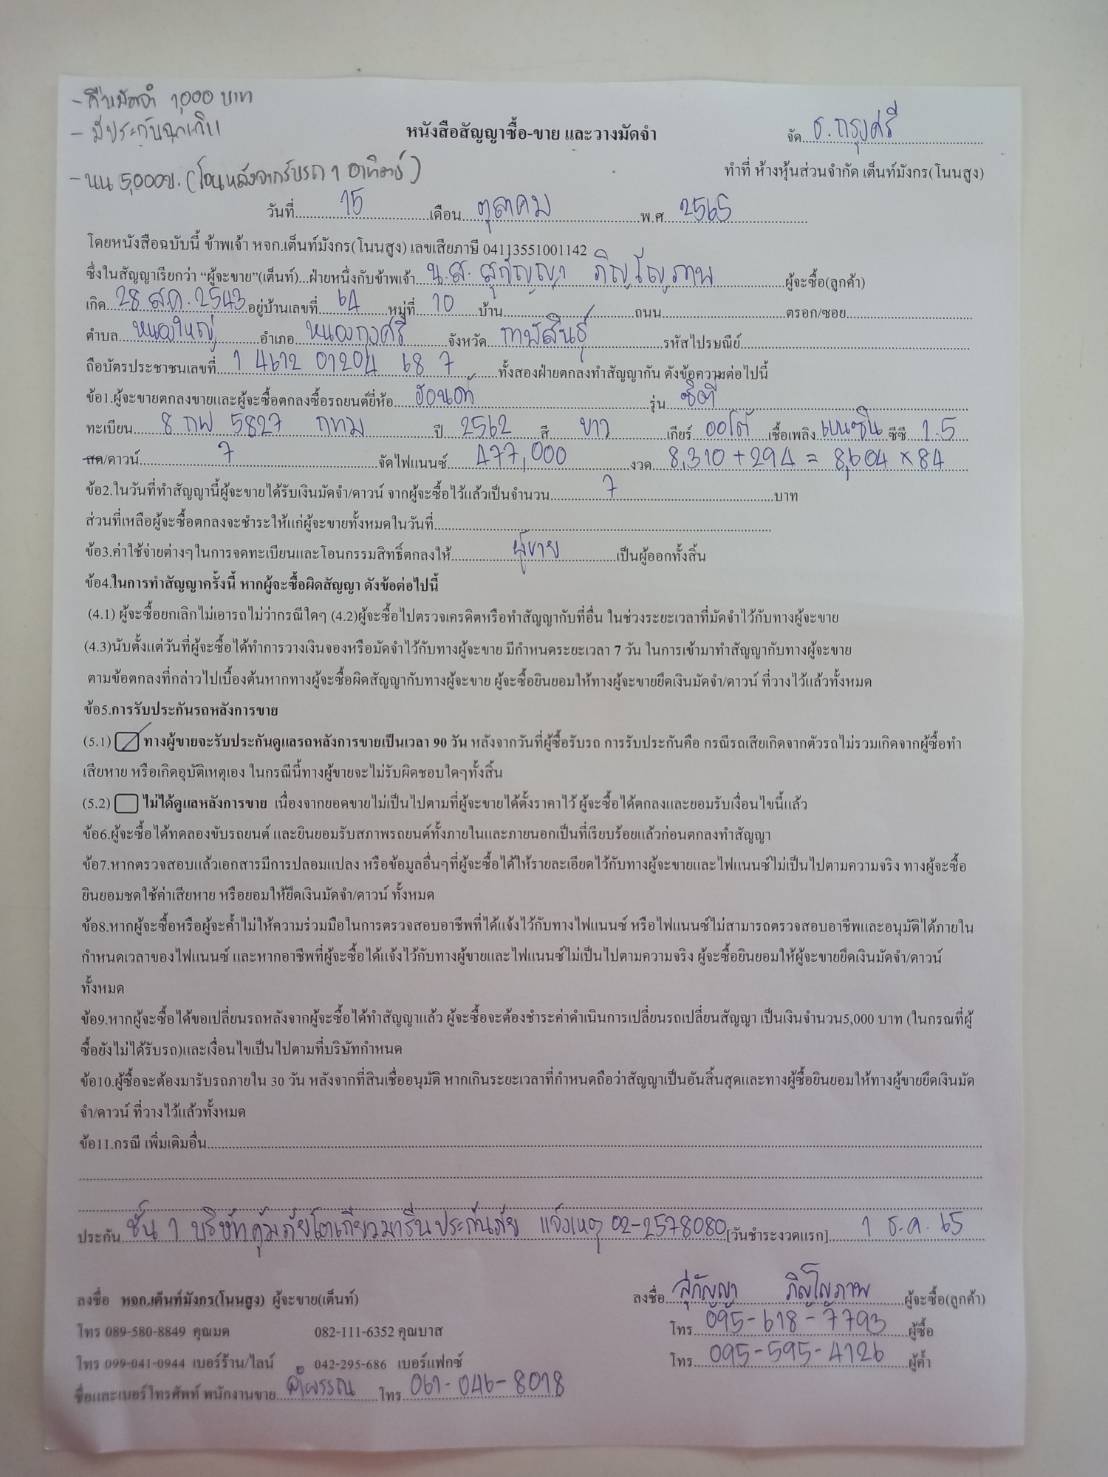 - คืนมัดจำ 1,000 บาท
- มีประกันฉุกเฉิน
- แนน 5,000บ. (โอนหลังจากรับรถ 1 อาทิตย์)
หนังสือสัญญาซื้อ-ขาย และวางมัดจำ
จัด ธ.กรุงศรี
ทำที่ ห้างหุ้นส่วนจำกัด เต็นท์มังกร(โนนสูง)
วันที่ 15 เดือน ตุลาคม พ.ศ 2565
โดยหนังสือฉบับนี้ ข้าพเจ้า หจก.เต็นท์มังกร(โนนสูง) เลขเสียภาษี 04113551001142
ซึ่งในสัญญาเรียกว่า “ผู้จะขาย”(เต็นท์)...ฝ่ายหนึ่งกับข้าพเจ้า น.ส. สุกัญญา ภิญโญภาพ ผู้จะซื้อ(ลูกค้า)
เกิด 28 ส.ค. 2543 อยู่บ้านเลขที่ 64 หมู่ที่ 10 บ้าน ถนน ตรอก/ซอย
ตำบล หนองใหญ่ อำเภอ หนองกุงศรี จังหวัด กาฬสินธุ์ รหัสไปรษณีย์
ถือบัตรประชาชนเลขที่ 1 4612 01204 68 7 ทั้งสองฝ่ายตกลงทำสัญญากัน ดังข้อความต่อไปนี้
ข้อ1.ผู้จะขายตกลงขายและผู้จะซื้อตกลงซื้อรถยนต์ยี่ห้อ ฮอนด้า รุ่น ซิตี้
ทะเบียน 8 กฬ 5827 กทม ปี 2562 สี ขาว เกียร์ ออโต้ เชื้อเพลิง เบนซิน ซีซี 1.5
สด/ดาวน์ 7 จัดไฟแนนซ์ 477,000 งวด 8,310 + 294 = 8,604 x 84
ข้อ2.ในวันที่ทำสัญญานี้ผู้จะขายได้รับเงินมัดจำ/ดาวน์ จากผู้จะซื้อไว้แล้วเป็นจำนวน 7 บาท
ส่วนที่เหลือผู้จะซื้อตกลงจะชำระให้แก่ผู้จะขายทั้งหมดในวันที่
ข้อ3.ค่าใช้จ่ายต่างๆในการจดทะเบียนและโอนกรรมสิทธิ์ตกลงให้ ผู้ขาย เป็นผู้ออกทั้งสิ้น
ข้อ4.ในการทำสัญญาครั้งนี้ หากผู้จะซื้อผิดสัญญา ดังข้อต่อไปนี้
(4.1) ผู้จะซื้อยกเลิกไม่เอารถไม่ว่ากรณีใดๆ (4.2)ผู้จะซื้อไปตรวจเครดิตหรือทำสัญญากับที่อื่น ในช่วงระยะเวลาที่มัดจำไว้กับทางผู้จะขาย
(4.3)นับตั้งแต่วันที่ผู้จะซื้อได้ทำการวางเงินจองหรือมัดจำไว้กับทางผู้จะขาย มีกำหนดระยะเวลา 7 วัน ในการเข้ามาทำสัญญากับทางผู้จะขาย
ตามข้อตกลงที่กล่าวไปเบื้องต้นหากทางผู้จะซื้อผิดสัญญากับทางผู้จะขาย ผู้จะซื้อยินยอมให้ทางผู้จะขายยึดเงินมัดจำ/ดาวน์ ที่วางไว้แล้วทั้งหมด
ข้อ5.การรับประกันรถหลังการขาย
(5.1) ทางผู้ขายจะรับประกันดูแลรถหลังการขายเป็นเวลา 90 วัน หลังจากวันที่ผู้ซื้อรับรถ การรับประกันคือ กรณีรถเสียเกิดจากตัวรถ ไม่รวมเกิดจากผู้ซื้อทำ
เสียหาย หรือเกิดอุบัติเหตุเอง ในกรณีนี้ทางผู้ขายจะไม่รับผิดชอบใดๆทั้งสิ้น
(5.2) ไม่ได้ดูแลหลังการขาย เนื่องจากยอดขายไม่เป็นไปตามที่ผู้จะขายได้ตั้งราคาไว้ ผู้จะซื้อได้ตกลงและยอมรับเงื่อนไขนี้แล้ว
ข้อ6.ผู้จะซื้อได้ทดลองขับรถยนต์ และยินยอมรับสภาพรถยนต์ทั้งภายในและภายนอกเป็นที่เรียบร้อยแล้วก่อนตกลงทำสัญญา
ข้อ7.หากตรวจสอบแล้วเอกสารมีการปลอมแปลง หรือข้อมูลอื่นๆที่ผู้จะซื้อได้ให้รายละเอียดไว้กับทางผู้จะขายและไฟแนนซ์ไม่เป็นไปตามความจริง ทางผู้จะซื้อ
ยินยอมชดใช้ค่าเสียหาย หรือยอมให้ยึดเงินมัดจำ/ดาวน์ ทั้งหมด
ข้อ8.หากผู้จะซื้อหรือผู้จะค้ำไม่ให้ความร่วมมือในการตรวจสอบอาชีพที่ได้แจ้งไว้กับทางไฟแนนซ์ หรือไฟแนนซ์ไม่สามารถตรวจสอบอาชีพและอนุมัติได้ภายใน
กำหนดเวลาของไฟแนนซ์ และหากอาชีพที่ผู้จะซื้อได้แจ้งไว้กับทางผู้ขายและไฟแนนซ์ไม่เป็นไปตามความจริง ผู้จะซื้อยินยอมให้ผู้จะขายยึดเงินมัดจำ/ดาวน์
ทั้งหมด
ข้อ9.หากผู้จะซื้อได้ขอเปลี่ยนรถหลังจากผู้จะซื้อได้ทำสัญญาแล้ว ผู้จะซื้อจะต้องชำระค่าดำเนินการเปลี่ยนรถเปลี่ยนสัญญา เป็นเงินจำนวน5,000 บาท (ในกรณที่ผู้
ซื้อยังไม่ได้รับรถ)และเงื่อนไขเป็นไปตามที่บริษัทกำหนด
ข้อ10.ผู้ซื้อจะต้องมารับรถภายใน 30 วัน หลังจากที่สินเชื่ออนุมัติ หากเกินระยะเวลาที่กำหนดถือว่าสัญญาเป็นอันสิ้นสุดและทางผู้ซื้อยินยอมให้ทางผู้ขายยึดเงินมัด
จำ/ดาวน์ ที่วางไว้แล้วทั้งหมด
ข้อ11.กรณี เพิ่มเติมอื่น
ประกัน ชั้น 1 บริษัทคุ้มภัยโตเกียวมารีนประกันภัย แจ้งเหตุ 02-2578080 [วันชำระงวดแรก] 1 ธ.ค. 65
ลงชื่อ หจก.เต็นท์มังกร(โนนสูง) ผู้จะขาย(เต็นท์) ลงชื่อ สุกัญญา ภิญโญภาพ ผู้จะซื้อ(ลูกค้า)
โทร 089-580-8849 คุณมด 082-111-6352 คุณบาส โทร 095-618-7793 ผู้ซื้อ
โทร 099-041-0944 เบอร์ร้าน/ไลน์ 042-295-686 เบอร์แฟกซ์ โทร 095-595-4126 ผู้ค้ำ
ชื่อและเบอร์โทรศัพท์ พนักงานขาย โทร 061-046-8018